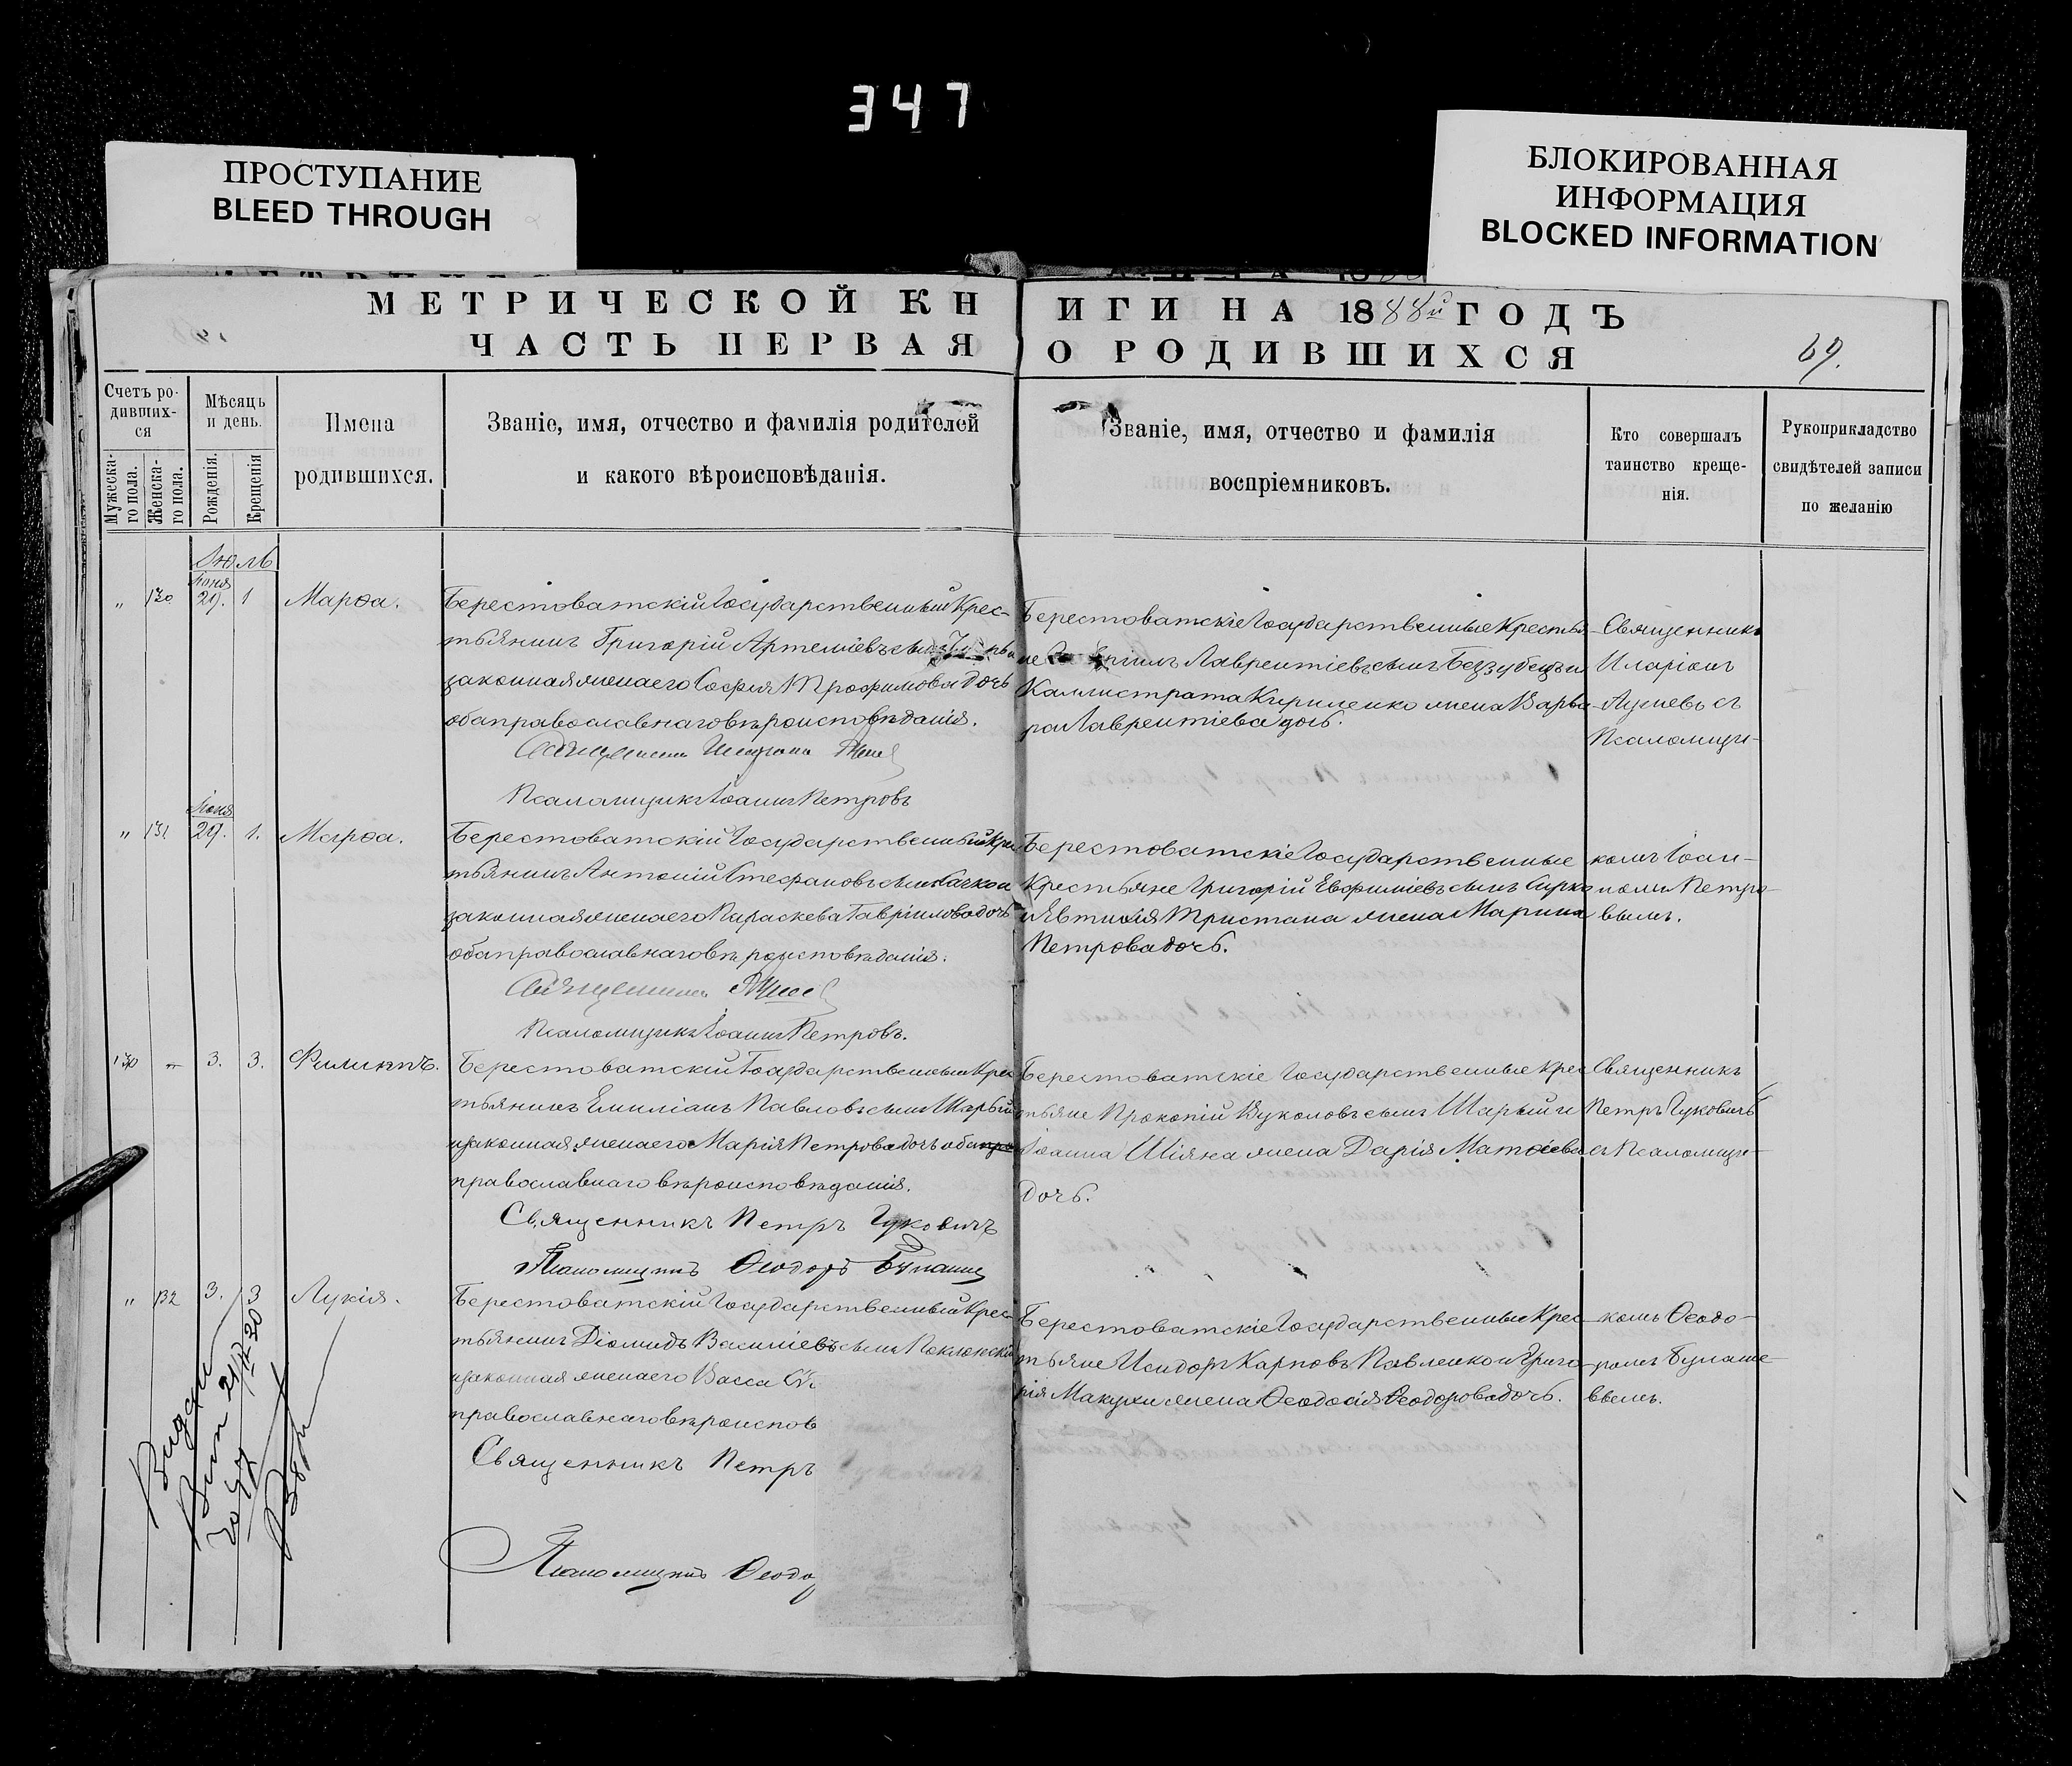 347
ПРОСТУПАНИЕ
BLEED THROUGH
БЛОКИРОВАННАЯ
ИНФОРМАЦИЯ
BLOCKED INFORMATION
МЕТРИЧЕСКОЙ КНИГИ НА 1888й ГОДЪ
ЧАСТЬ ПЕРВАЯ О РОДИВШИХСЯ
69.
Счетъ ро-
дивших-
ся
Мужеска-
го пола.
Женска-
го пола.
Мѣсяць
и день.
Рожденія.
Крещенія
Имена
родившихся.
Званіе, имя, отчество и фамилія родителей
и какого вѣроисповѣданія.
Званіе, имя, отчество и фамилія
воспріемниковъ.
Кто совершалъ
таинство креще-
нія.
Рукоприкладство
свидѣтелей записи
по желанію
Июль
Июня
" 130 29. 1 Марѳа.
Берестоватскій Государственный Крес-
тьянинъ Григорій Артеміевъ сынъ
законная жена его Софія Трофимова дочь
оба православнаго вѣроисповѣданія.
Псаломщикъ Іоаннъ Петровъ
Берестоватскіе Государственные Крестья-
не Лаврентіевъ сынъ Беззубецъ и
Каллистрата Кириленко жена Варва-
ра Лаврентіева дочь.
Священникъ
Иларіонъ
съ
Псаломщи-
Июня
" 131 29. 1. Марѳа.
Берестоватскій Государственный Крес
тьянинъ Антоній Стефановъ сынъ
законная жена его Параскева Гавріилова дочь
оба православнаго вѣроисповѣданія.
Священникъ
Псаломщикъ Іоаннъ Петровъ.
Берестоватскіе Государственные
Крестьяне Григорій Евфиміевъ сынъ Сирко
и Евтихія Тристана жена Марина
Петрова дочь.
комъ Іоан-
номъ Петро-
вымъ.
130 " 3. 3. Филиппъ.
Берестоватскій Государственный Крес
тьянинъ Емиліанъ Павловъ сынъ Шарый
и законная жена его Марія Петрова дочь оба пра
православнаго вѣроисповѣданія.
Священникъ Петръ Гуковичъ
Псаломщикъ Ѳеодоръ
Берестоватскіе Государственные Крес
тьяне Прокопій Вуколовъ сынъ Шарый и
Іоанна Шіяна жена Дарія Матѳіева
дочь.
Священникъ
Петръ Гуковичъ
съ Псаломщи-
" 132 3. 3 Лукія.
Берестоватскій Государственный Крес
тьянинъ Діомидъ Василіевъ сынъ Поклонскій
и законная жена его Васса
православнаго вѣроиспов
Священникъ Петръ
Псаломщикъ Ѳеодо
Берестоватскіе Государственные Крес-
тьяне Исидоръ Карповъ Павленко и Григо-
рія Макухи жена Ѳеодосія Ѳеодорова дочь.
комъ Ѳеодо-
ромъ
вымъ.